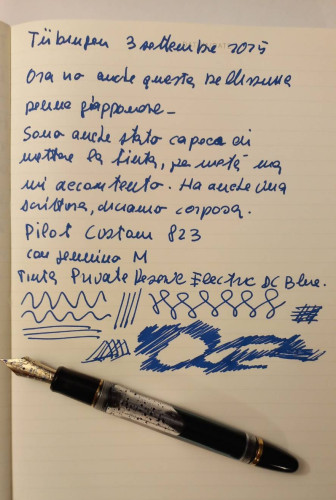 Tübingen 3 settembre 2025
Ora ho anche questa bellissima
penna giapponese_
Sono anche stato capace di
mettere la tinta, per metà ma
mi accontento. Ha anche una
scrittura, diciamo corposa.
Pilot Custom 823
con pennino M
Tinta Private Reserve Electric DC Blue.